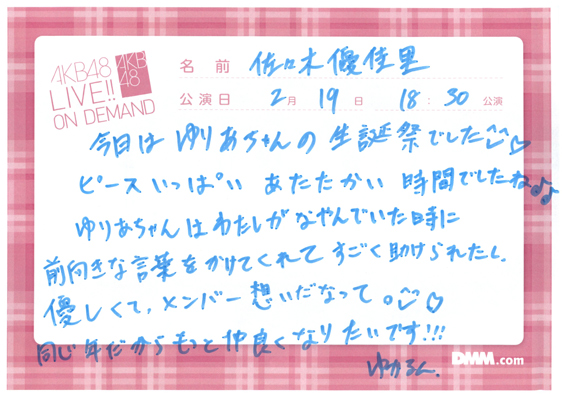 AKB48
LIVE!!
ON DEMAND
AKB
48
名前 佐々木優佳里
公演日 2月 19日 18:30公演
今日はゆりあちゃんの生誕祭でした♡
ピースいっぱいあたたかい時間でしたね♪♪
ゆりあちゃんはわたしがなやんでいた時に
前向きな言葉をかけてくれてすごく助けられたし、
優しくて、メンバー想いだなって。♡
同じ年だからもっと仲良くなりたいです!!!
ゆかるん、
DMM.com